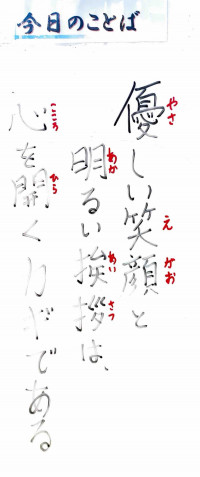 今日のことば
優しい笑顔と
明るい挨拶は、
心を開くカギである
やさ
え
がお
あか
あい
さつ
こころ
ひら